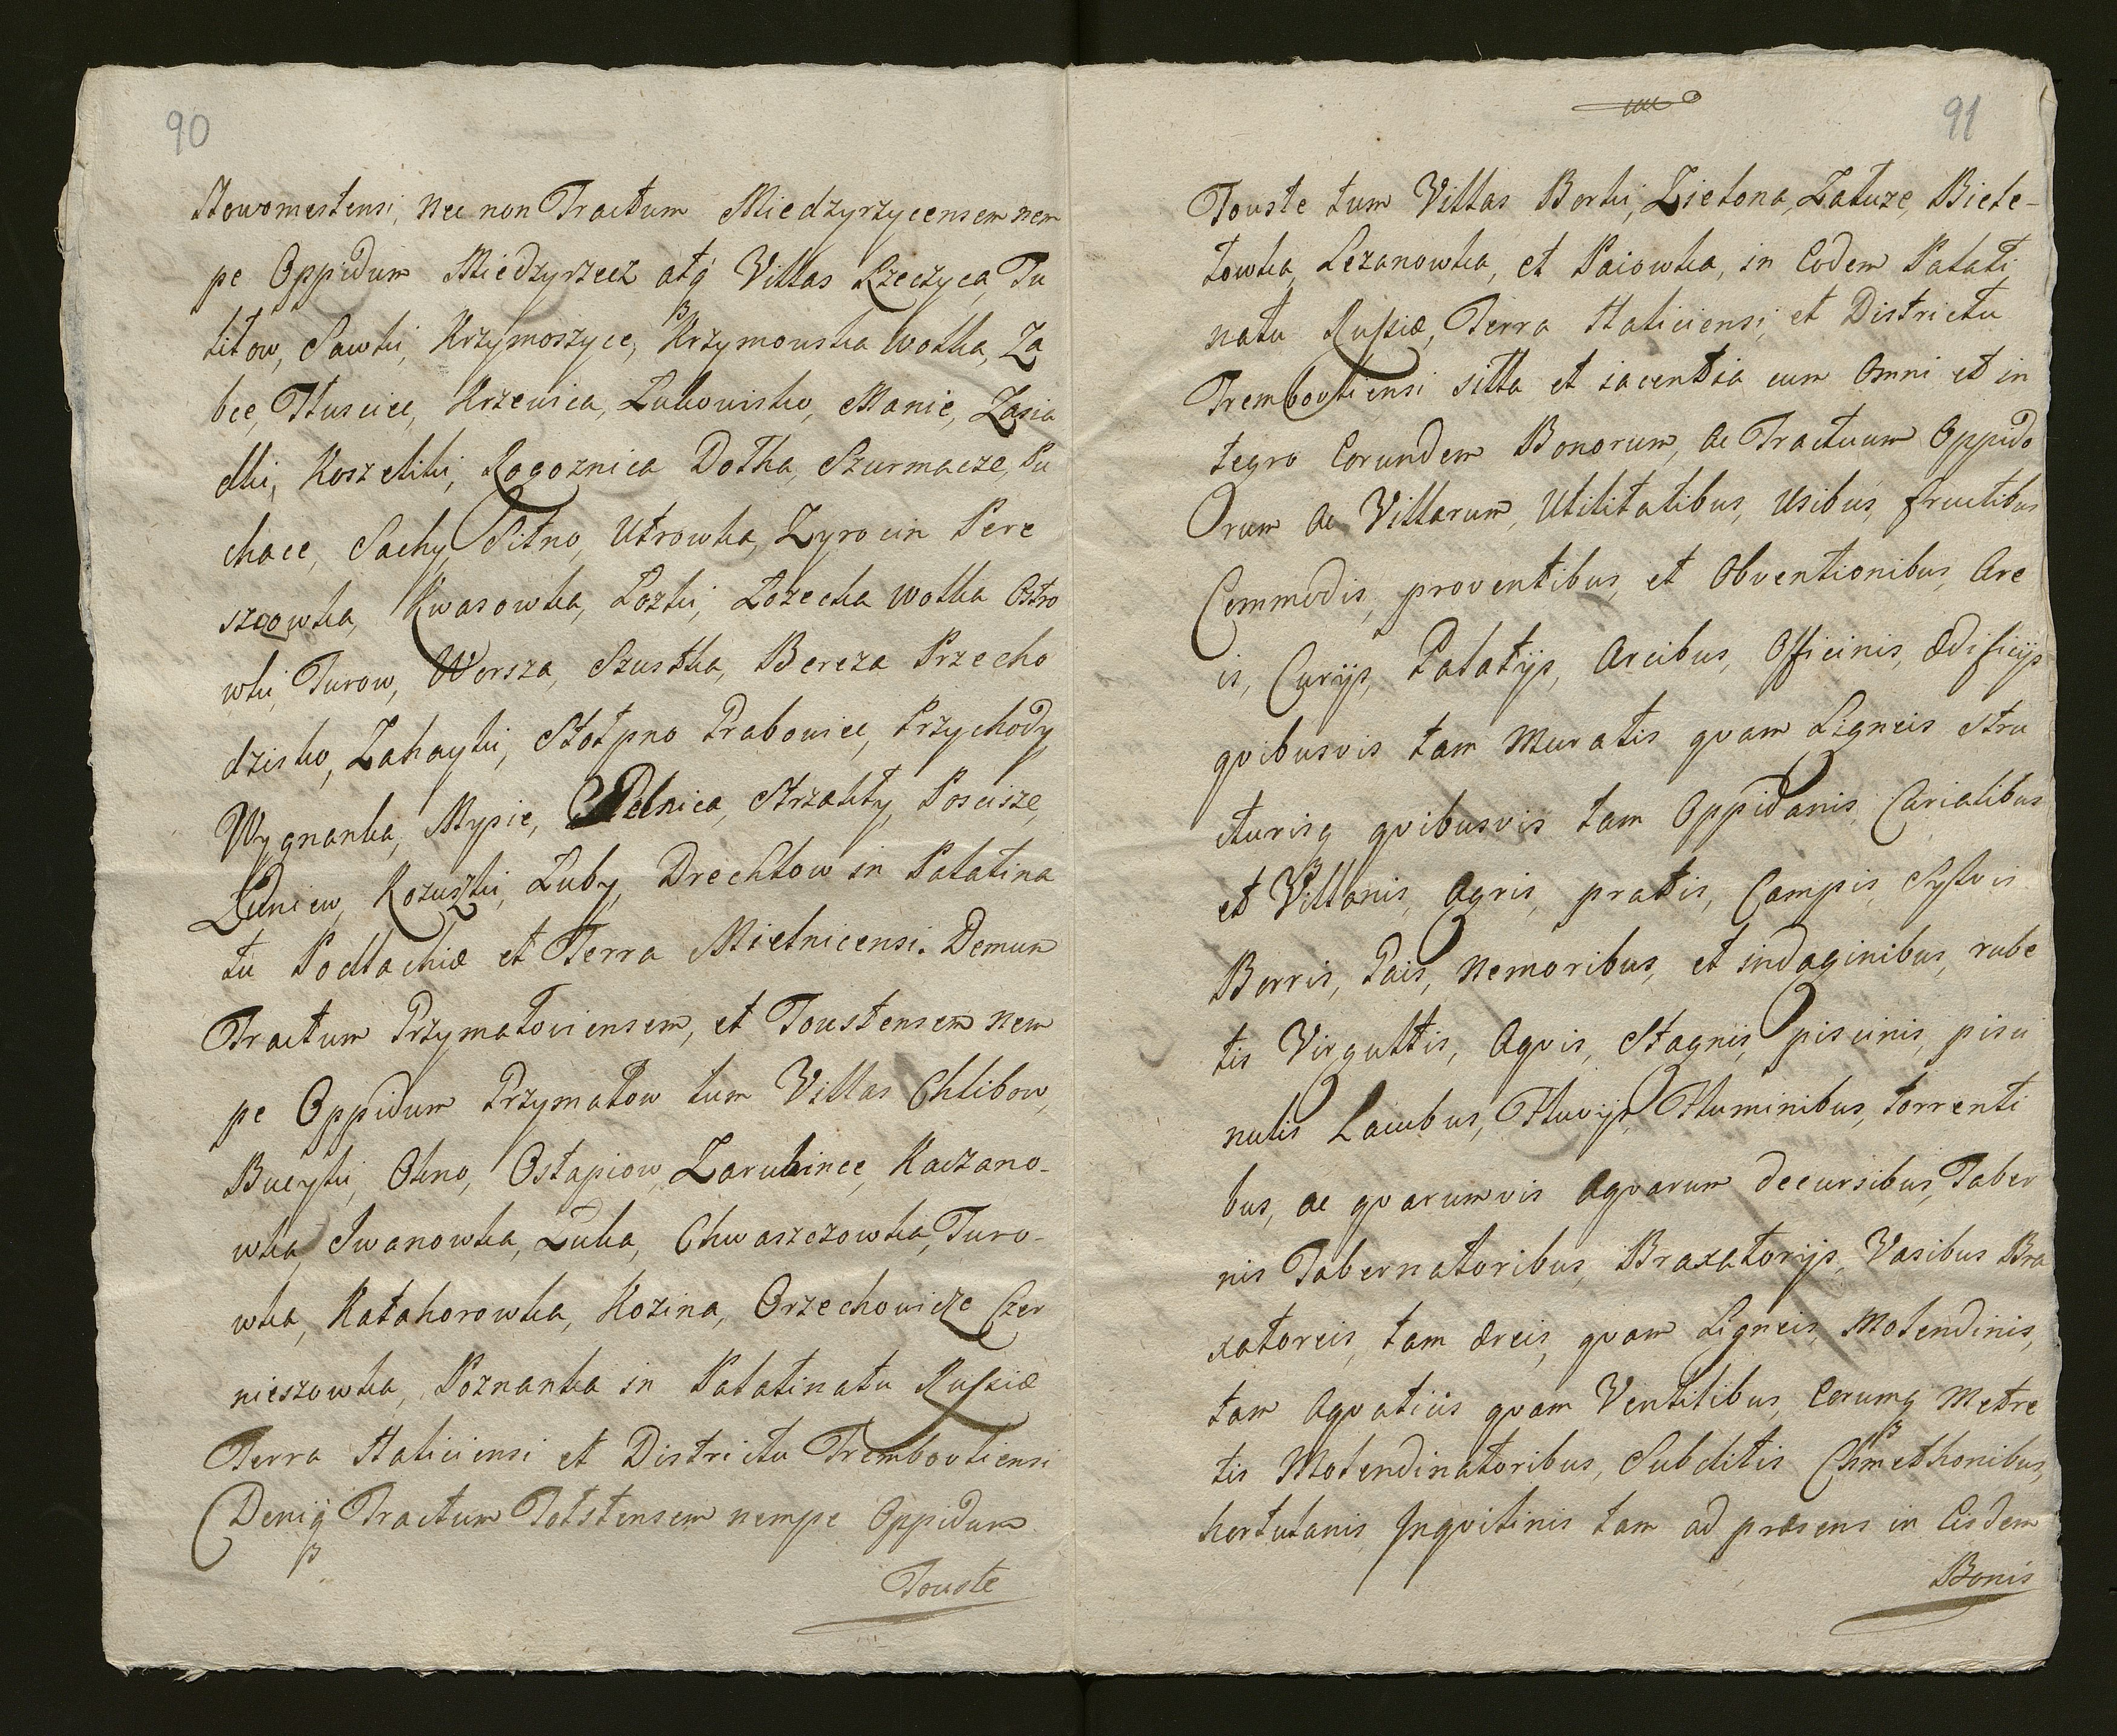 90
Nowomestensi, nec non Tractum Miedzyrzycensem nem
pe Oppidum Miedzyrzecz atq Villas Rzeczyca, Tu
litow, Sawki, Krzymoszyce, Krzymouska Wolka, Za
bce, Tłuscice, Krzewica, Łukowisko, Manie, Zasia
dki, Koszeliki, Rogoznica Dolha, Szurmacze, Pu
chace, Sachy Sitno, Utrowka, Zyrocin Pere
szrowka, Kwasowka, Łozki, Łozecka Wolka Ostro
wki Turow, Worsza, Szustka, Bereza Przecho
dzisko, Zahayki, Stołpno Grabowice, Przychody
Wygnanka, Mysie, Pelnica, Strzakły, Poscisze,
Duniew, Kozuszki, Łuby, Drechlow in Palatina
tu Podlachiæ et Terra Mielnicensi. Demum
Tractum Grzymaloviensem, et Toustensem nem
pe Oppidum Grzymałow tum Villas Chlibow,
Bucyki, Okno, Ostapiow, Zarubince, Kaczano-
wka Iwanowka, Łuka, Chwaszczowka, Turo-
wka, Kałahorowka, Kozina, Orzechowicze Czer
nieszowka, Poznanka in Palatinatu Russiæ
Terra Haliciensi et Districtu Trembovliensi
Deniq Tractum Tolstensem nempe Oppidum
Touste
91
Touste tum Villas Borki, Zielona, Załuze, Biele-
towka Lezanowka, et Paiowka, in Eodem Palati
natu Russiæ, Terra Haliciensi et Districtu
Trembovliensi sitta et iacentia cum Omni et in
tegro Eorundem Bonorum, ac Tractuum Oppido
rum ac Villarum, Utilitatibus, Usibus, fructibus
Commodis, proventibus, et Obventionibus, Are
is, Curijs, Palatijs, Arcibus, Officinis, Ædificijs
qvibusvis tam Muratis qvam Ligneis Stru
cturisq qvibusvis tam Oppidanis, Curialibus
et Villanis, Agris, pratis, Campis, Sylvis
Borris, Gais, Nemoribus, et indaginibus, rube
tis Virgultis, Aqvis, Stagnis, piscinis, pisci
nulis Lacubus, Fluvijs, Fluminibus, torrenti
bus, ac qvarumvis Aqvarum decursibus, Taber
nis Tabernatoribus, Braxatorijs, Vasibus Bra
xatoreis, tam Æreis, qvam Ligneis, Molendinis,
tam Aqvaticis qvam Ventilibus, Eorumq Metre
tis Molendinatoribus, Subditis Chmethonibus,
hortulanis Inqvilinis tam ad præsens in Eisdem
Bonis